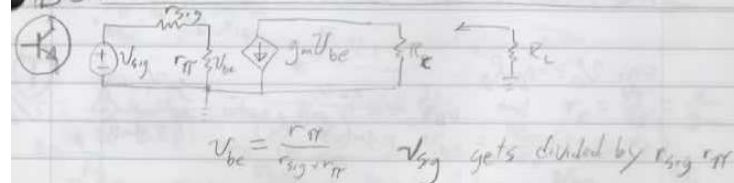 r_sig
V_sig r_π V_be g_m V_be R_C R_L
V_be = r_π / (r_sig + r_π) V_sig gets divided by r_sig r_π